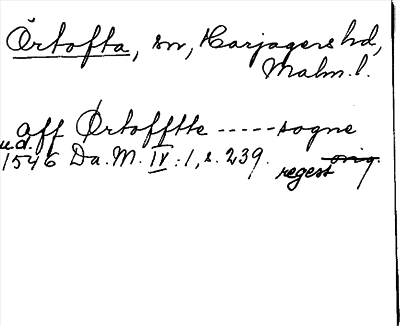 Örtofta, sn, Harjagers hd,
Malm. l.
aff Ørtofftte ----- sogne
u.d.
1546 Da. M. IV: 1, s. 239. orig
regest